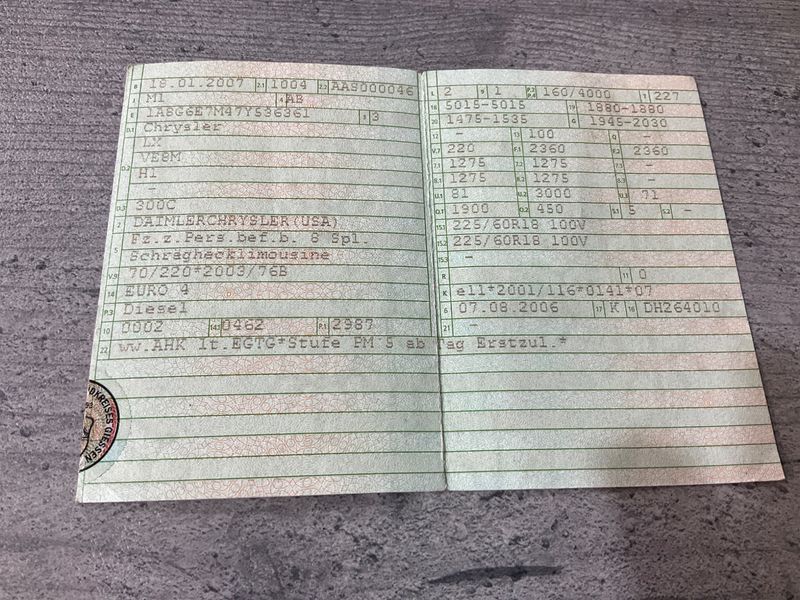 B 18.01.2007 2.1 1004 2.2 AAS000046
J M1 4 AB
E 1A8G6E7M47Y536361 3 3
D.1 Chrysler
LX
D.2 VE8M
H1
-
D.3 300C
2 DAIMLERCHRYSLER(USA)
Fz.z.Pers.bef.b. 8 Spl.
5 Schräghecklimousine
V.9 70/220*2003/76B
14 EURO 4
P.3 Diesel
10 0002 14.1 0462 P.1 2987
22 ww.AHK lt.EGTG*Stufe PM 5 ab Tag Erstzul.*
L 2 9 1 P.2 P.4 160/4000 T 227
18 5015-5015 19 1880-1880
20 1475-1535 G 1945-2030
12 - 13 100 Q -
V.7 220 F.1 2360 F.2 2360
7.1 1275 7.2 1275 7.3 -
8.1 1275 8.2 1275 8.3 -
U.1 81 U.2 3000 U.3 71
O.1 1900 O.2 450 S.1 5 S.2 -
15.1 225/60R18 100V
15.2 225/60R18 100V
15.3 -
R 11 0
K e11*2001/116*0141*07
6 07.08.2006 17 K 16 DH264010
21 -
DKREISES GIESSEN